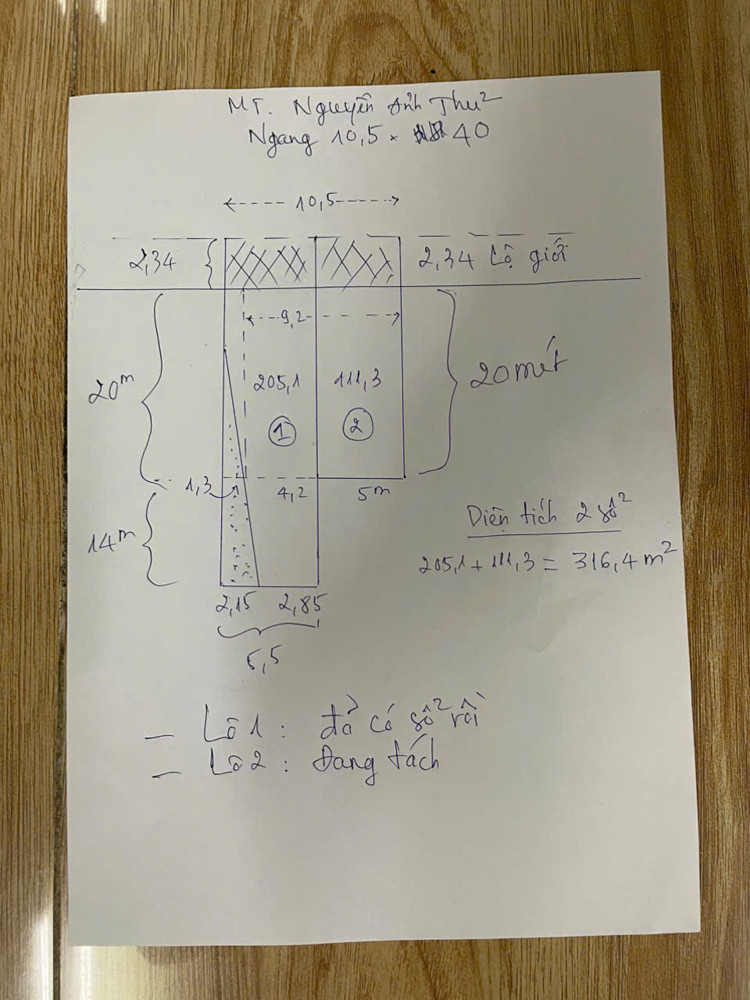 MT. Nguyễn Ảnh Thủ
Ngang 10,5 x 40
10,5
2,34
2,34 Lộ giới
9,2
20m
205,1
111,3
20 mét
1
2
1,3
4,2
5m
14m
Diện tích 2 sổ
205,1 + 111,3 = 316,4 m²
2,15
2,85
5,5
- Lô 1 : đả có sổ rồi
- Lô 2 : Đang tách